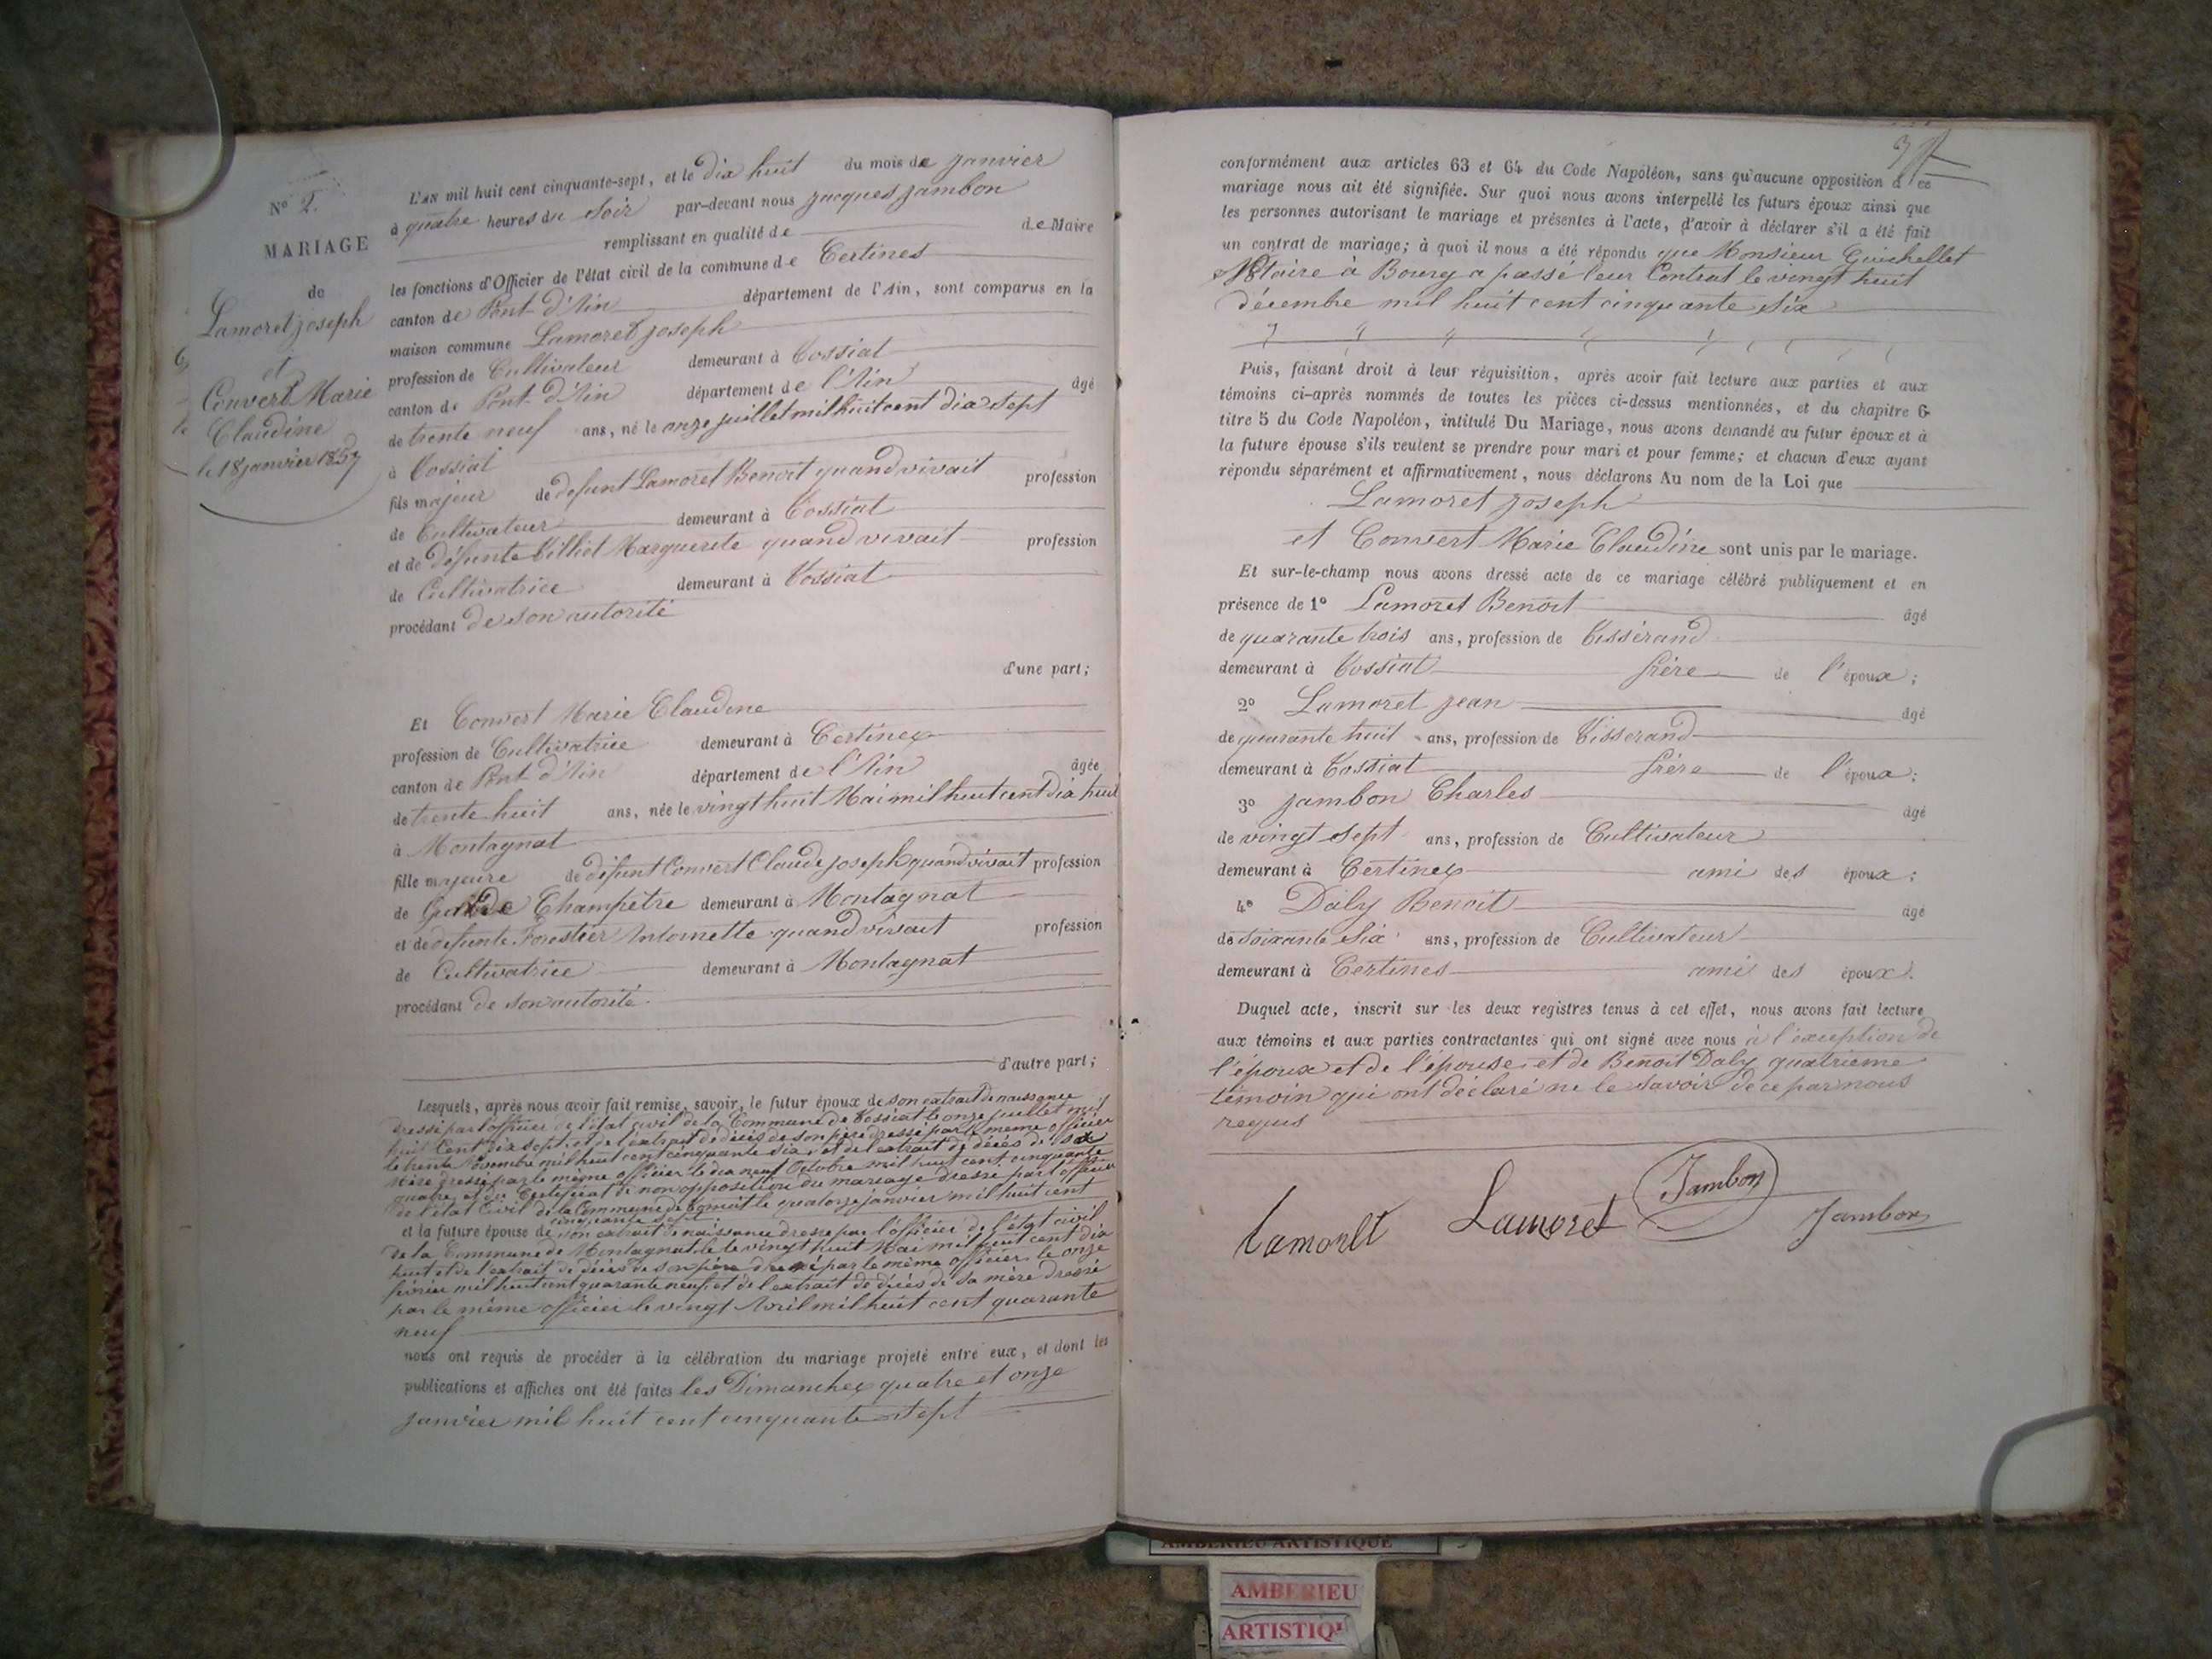 N° 2.
MARIAGE
de
Lamoret joseph
et
Convert Marie
Claudine
le 18 janvier 1857
L'AN mil huit cent cinquante-sept, et le dix huit du mois de janvier
à quatre heures du soir par-devant nous jacques jambon
remplissant en qualité de de Maire
les fonctions d'Officier de l'état civil de la commune de Certines
canton de Pont-d'Ain département de l'Ain, sont comparus en la
maison commune Lamoret joseph
profession de Cultivateur demeurant à Tossiat
canton de Pont-d'Ain département de l'Ain âgé
de trente neuf ans, né le onze juillet mil huit cent dix sept
à Tossiat
fils majeur de defunt Lamoret Benoit quand vivait profession
de Cultivateur demeurant à Tossiat
et de défunte Billiet Marguerite quand vivait profession
de Cultivatrice demeurant à Tossiat
procédant de son autorité
d'une part;
Et Convert Marie Claudine
profession de Cultivatrice demeurant à Certines
canton de Pont-d'Ain département de l'Ain âgée
de trente huit ans, née le vingt huit Mai mil huit cent dix huit
à Montagnat
fille majeure de défunt Convert Claude joseph quand vivait profession
de Garde Champêtre demeurant à Montagnat
et de defunte Forestier Antoinette quand vivait profession
de Cultivatrice demeurant à Montagnat
procédant de son autorité.
d'autre part;
Lesquels, après nous avoir fait remise, savoir, le futur époux de son extrait de naissance
dressé par l'officier de l'état civil de la Commune de Tossiat le onze juillet mil
huit Cent dix sept, et de l'extrait de décès de son père dressé par le même officier
le trente Novembre mil huit cent cinquante six, et de l'extrait de décès de sa
Mère dressé par le même officier le dix neuf Octobre mil huit cent cinquante
quatre, et du Certificat de non opposition du mariage dressé par l'officier
de l'état Civil de la Commune de Tossiat le quatorze janvier mil huit cent
cinquante sept
et la future épouse de son extrait de naissance dressé par l'officier de l'état civil
de la Commune de Montagnat le vingt huit Mai mil huit cent dix
huit et de l'extrait de décès de son père dressé par le même officier le onze
février mil huit cent quarante neuf et de l'extrait de décès de sa mère dressé
par le même officier le vingt Avril mil huit cent quarante
neuf
nous ont requis de procéder à la célébration du mariage projeté entre eux, et dont les
publications et affiches ont été faites les Dimanches quatre et onze
janvier mil huit cent cinquante sept
conformément aux articles 63 et 64 du Code Napoléon, sans qu'aucune opposition à ce
mariage nous ait été signifiée. Sur quoi nous avons interpellé les futurs époux ainsi que
les personnes autorisant le mariage et présentes à l'acte, d'avoir à déclarer s'il a été fait
un contrat de mariage; à quoi il nous a été répondu que Monsieur Guichellet
Notaire à Bourg a passé leur Contrat le vingt huit
décembre mil huit cent cinquante six
Puis, faisant droit à leur réquisition, après avoir fait lecture aux parties et aux
témoins ci-après nommés de toutes les pièces ci-dessus mentionnées, et du chapitre 6
titre 5 du Code Napoléon, intitulé Du Mariage, nous avons demandé au futur époux et à
la future épouse s'ils veulent se prendre pour mari et pour femme; et chacun d'eux ayant
répondu séparément et affirmativement, nous déclarons Au nom de la Loi que
Lamoret joseph
et Convert Marie Claudine sont unis par le mariage.
Et sur-le-champ nous avons dressé acte de ce mariage célébré publiquement et en
présence de 1° Lamoret Benoit âgé
de quarante trois ans, profession de Tissérand
demeurant à Tossiat frère de l'époux;
2° Lamoret jean âgé
de quarante huit ans, profession de Tisserand
demeurant à Tossiat frère de l'époux;
3° jambon Charles âgé
de vingt sept ans, profession de Cultivateur
demeurant à Certines ami des époux;
4° Daly Benoit âgé
de soixante six ans, profession de Cultivateur
demeurant à Certines ami des époux.
Duquel acte, inscrit sur les deux registres tenus à cet effet, nous avons fait lecture
aux témoins et aux parties contractantes qui ont signé avec nous à l'exception de
l'époux et de l'épouse et de Benoit Daly quatrième
témoin qui ont déclaré ne le savoir de ce par nous
requis
Lamorelt Lamoret Jambon Jambon
AMBERIEU ARTISTIQUE
AMBERIEU
ARTISTIQ